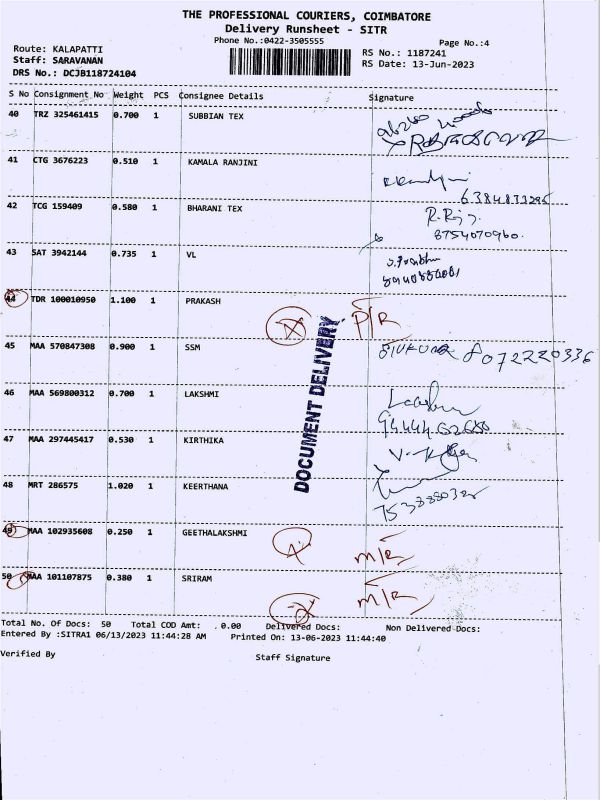 THE PROFESSIONAL COURIERS, COIMBATORE
Delivery Runsheet - SITR
Phone No.:0422-3505555
Page No.:4
Route: KALAPATTI
RS No.: 1187241
Staff: SARAVANAN
RS Date: 13-Jun-2023
DRS No.: DCJB118724104
S No Consignment No Weight PCS Consignee Details Signature
40 TRZ 325461415 0.700 1 SUBBIAN TEX
41 CTG 3676223 0.510 1 KAMALA RANJINI
6384833295
42 TCG 159409 0.580 1 BHARANI TEX
8754070960
43 SAT 3942144 0.735 1 VL
44 TDR 100010950 1.100 1 PRAKASH
P/R
45 MAA 570847308 0.900 1 SSM
8072220336
46 MAA 569800312 0.700 1 LAKSHMI
47 MAA 297445417 0.530 1 KIRTHIKA
48 MRT 286575 1.020 1 KEERTHANA
DOCUMENT DELIVERY
49 MAA 102935608 0.250 1 GEETHALAKSHMI
M/R
50 MAA 101107875 0.380 1 SRIRAM
M/R
Total No. Of Docs: 50 Total COD Amt: 0.00 Delivered Docs: Non Delivered Docs:
Entered By :SITRA1 06/13/2023 11:44:28 AM Printed On: 13-06-2023 11:44:40
Verified By Staff Signature